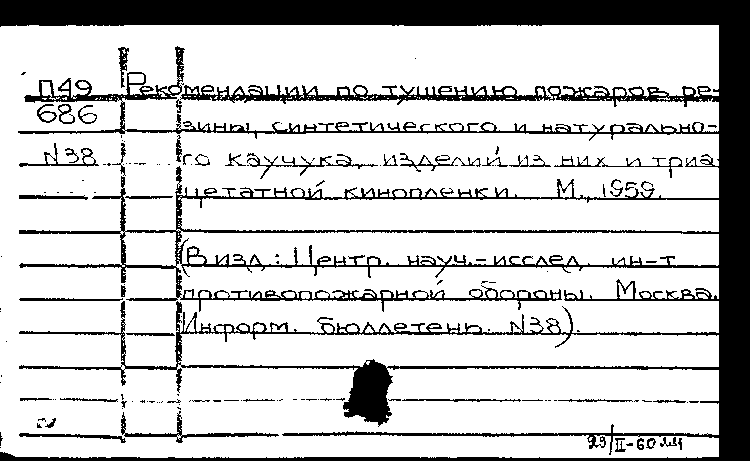 П49 Рекомендации по тушению пожаров ре-
686 зины, синтетического и натурально-
N38 го каучука, изделий из них и триа
цетатной кинопленки. М., 1959.
(В изд.: Центр. науч.-исслед. ин-т
противопожарной обороны. Москва.
Информ. бюллетень. N38).
29/II-60